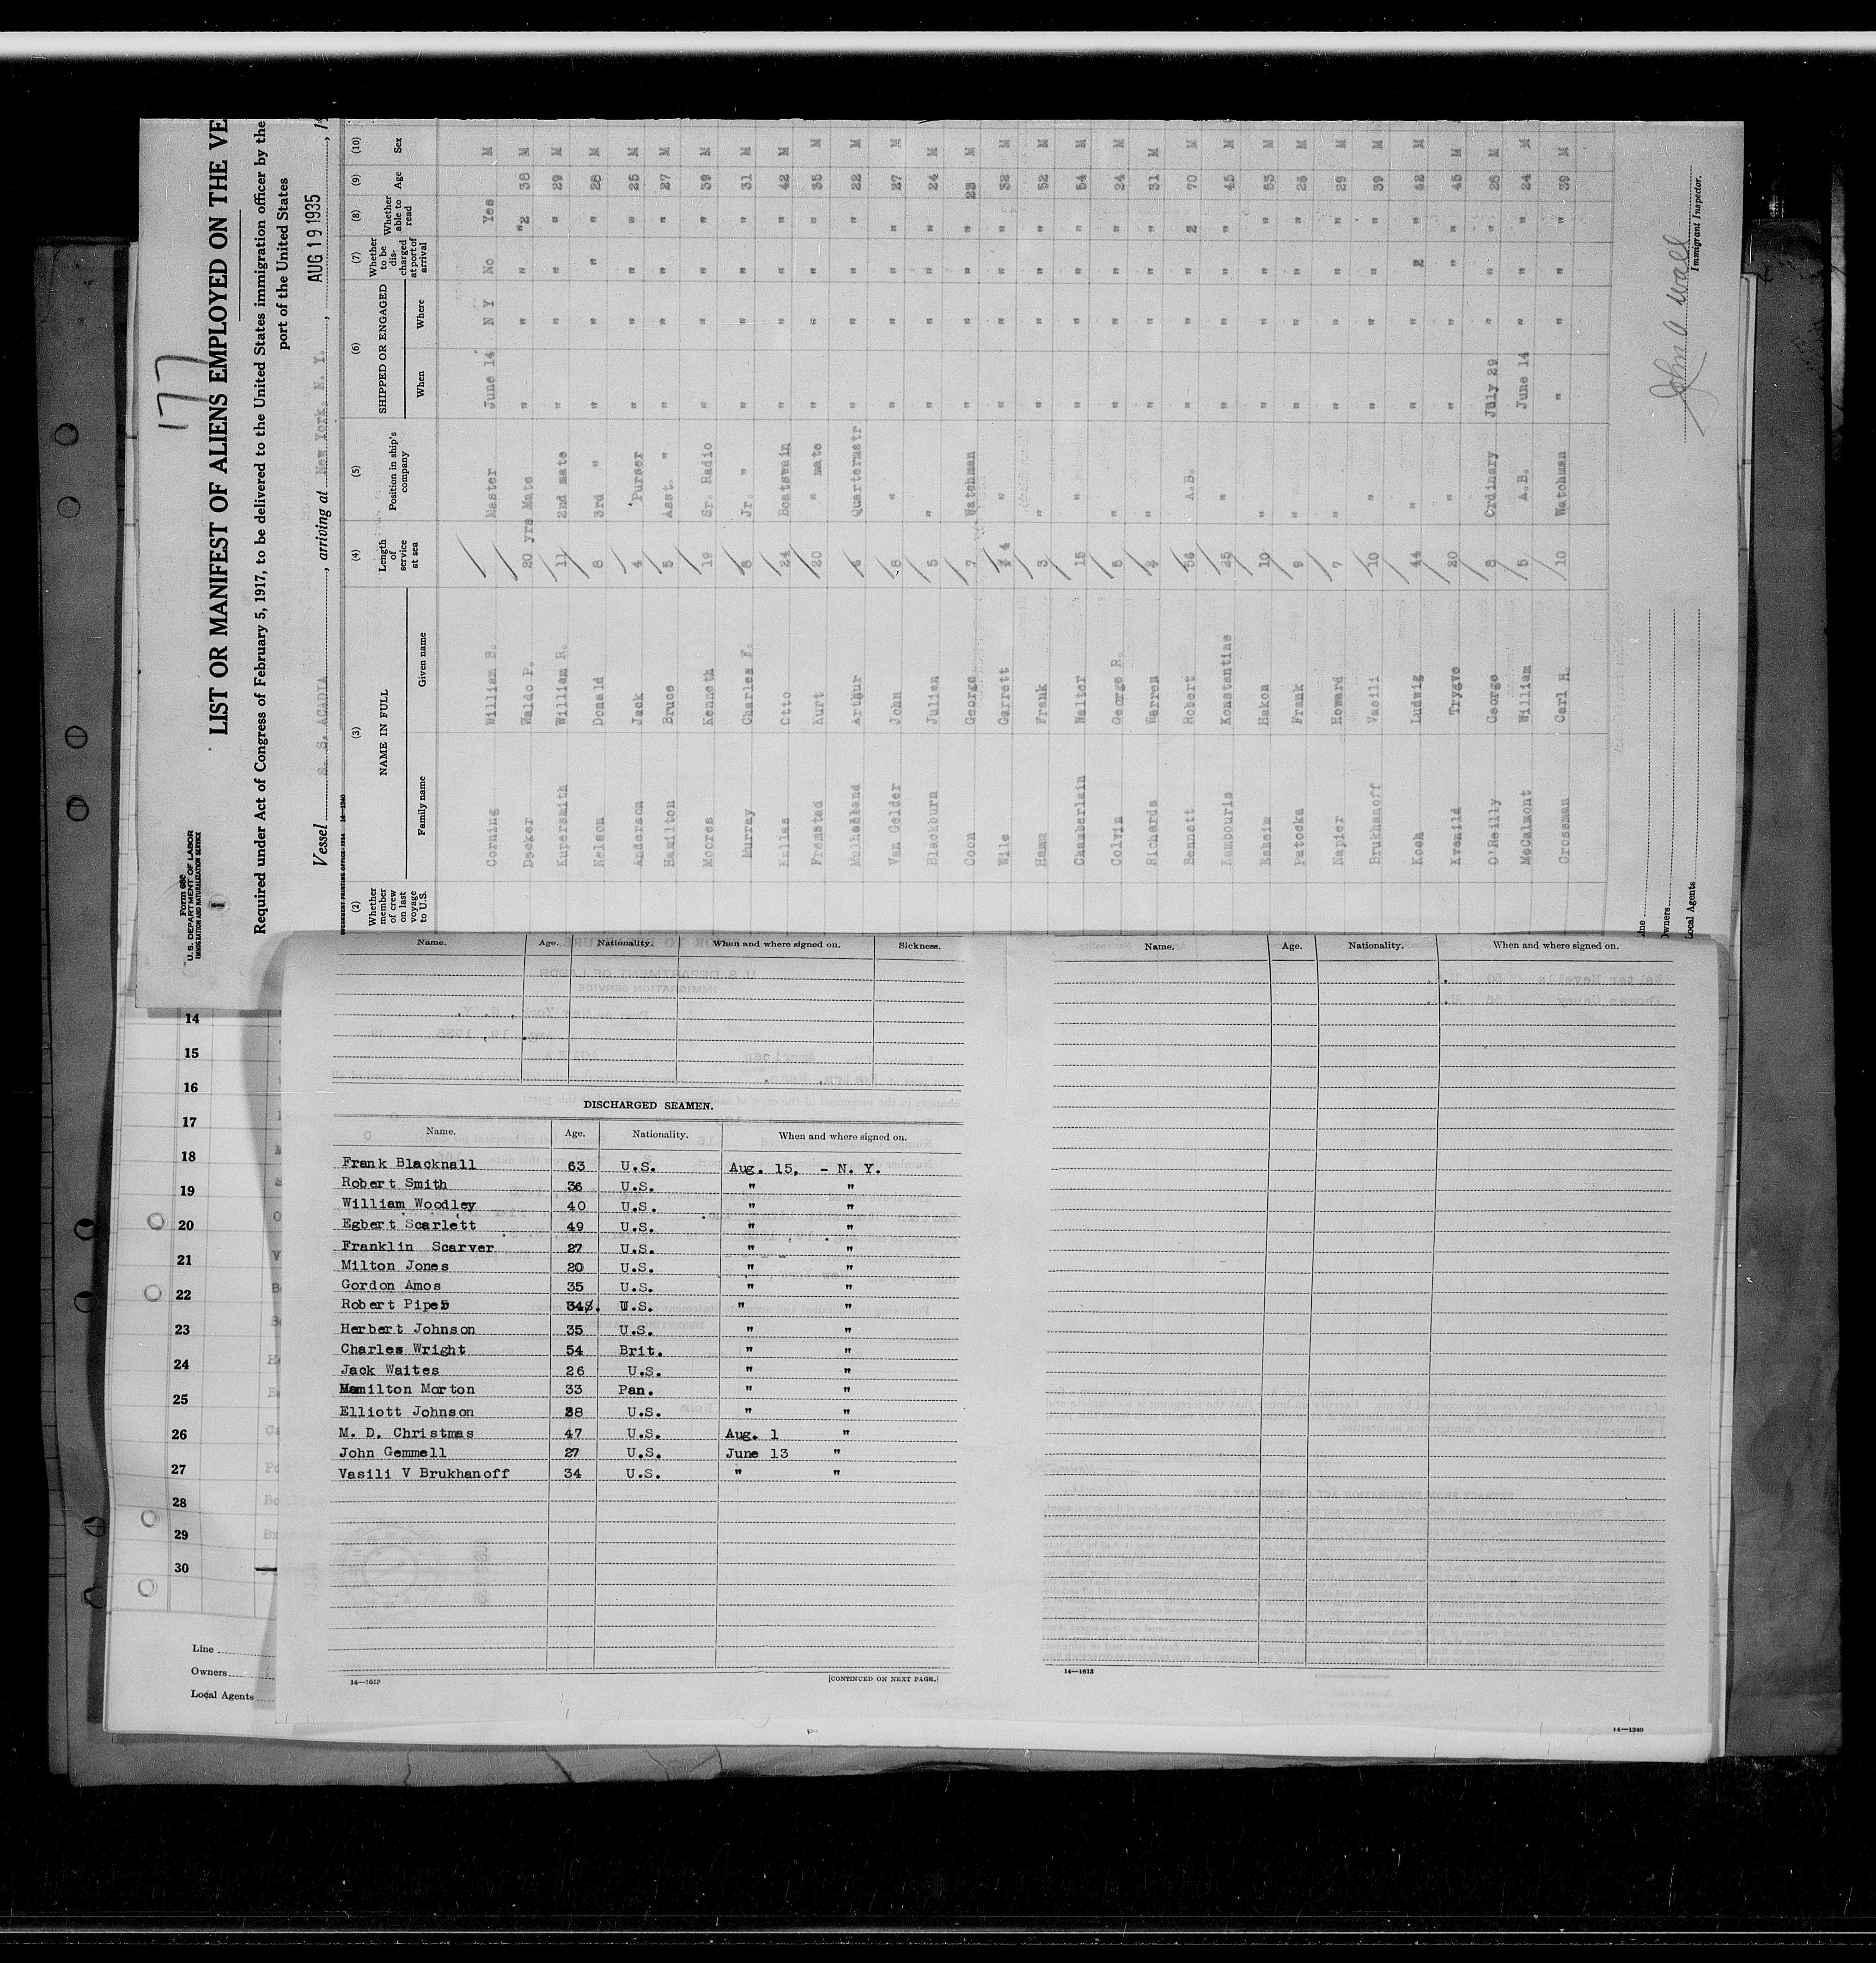 177
Form 680
U.S. DEPARTMENT OF LABOR
IMMIGRATION AND NATURALIZATION SERVICE
1
LIST OR MANIFEST OF ALIENS EMPLOYED ON THE VE
Required under Act of Congress of February 5, 1917, to be delivered to the United States immigration officer by the
port of the United States
Vessel S. S. ACADIA, arriving at New York, N. Y., AUG 19 1935, 19
(2) (3) (4) (5) (6) (7) (8) (9) (10)
Whether member of crew on last voyage to U.S. NAME IN FULL Family name Given name Length of service at sea Position in ship's company SHIPPED OR ENGAGED When Where Whether to be discharged at port of arrival Whether able to read Age Sex
Corning William B. Master June 14 N Y No Yes M
Decker Waldo P. 20 yrs Mate " " " "2 38 M
Kupersmith William R. 11 2nd mate " " " " 29 M
Nelson Donald 8 3rd " " " " " 28 M
Anderson Jack 4 Purser " " " " 25 M
Hamilton Bruce 5 Asst. " " " " " 27 M
Moores Kenneth 19 Sr. Radio " " " " 39 M
Murray Charles F. 8 Jr. " " " " " 31 M
Kallas Otto 24 Boatswain " " " " 42 M
Fremstad Kurt 20 " mate " " " " 35 M
Arthur 6 Quartermstr " " " " 22 M
Van Gelder John 8 " " " " " 27 M
Blackburn Julien 5 " " " " " 24 M
Coon George 7 Watchman " " " " 23 M
Wile Garrett 4 " " " " " 32 M
Hamm Frank 3 " " " " " 52 M
Chamberlain Walter 15 " " " " " 54 M
Colvin George R. 5 " " " " " 24 M
Richards Warren 2 " " " " " 31 M
Bennett Robert 56 A.B. " " " 2 70 M
Kambouris Konstantine 25 " " " " " 45 M
Esheim Hakon 19 " " " " " 53 M
Patocka Frank 9 " " " " " 26 M
Napier Howard 7 " " " " " 29 M
Brukhanoff Vasili 10 " " " " " 39 M
Koch Ludwig 44 " " " 2 " 62 M
Kvenild Trygve 20 " " " " " 45 M
O'Reilly George 8 Ordinary July 29 " " " 28 M
McCalmont William 5 A.B. June 14 " " " 24 M
Crossman Carl H. 10 Watchman " " " " 39 M
John A Wall
Immigrant Inspector.
Owners
Local Agents
14
15
16
17
18
19
20
21
22
23
24
25
26
27
28
29
30
Line
Owners
Local Agents
Name. Age. Nationality. When and where signed on. Sickness.
DISCHARGED SEAMEN.
Name. Age. Nationality. When and where signed on.
Frank Blacknall 63 U.S. Aug. 15, - N. Y.
Robert Smith 36 U.S. " "
William Woodley 40 U.S. " "
Egbert Scarlett 49 U.S. " "
Franklin Scarver 27 U.S. " "
Milton Jones 20 U.S. " "
Gordon Amos 35 U.S. " "
Robert Pipes 34 U.S. " "
Herbert Johnson 35 U.S. " "
Charles Wright 54 Brit. " "
Jack Waites 26 U.S. " "
Hamilton Morton 33 Pan. " "
Elliott Johnson 28 U.S. " "
M. D. Christmas 47 U.S. Aug. 1 "
John Gemmell 27 U.S. June 13 "
Vasili V Brukhanoff 34 U.S. " "
14—1613
[CONTINUED ON NEXT PAGE.]
Name. Age. Nationality. When and where signed on.
14—1613
14—1240